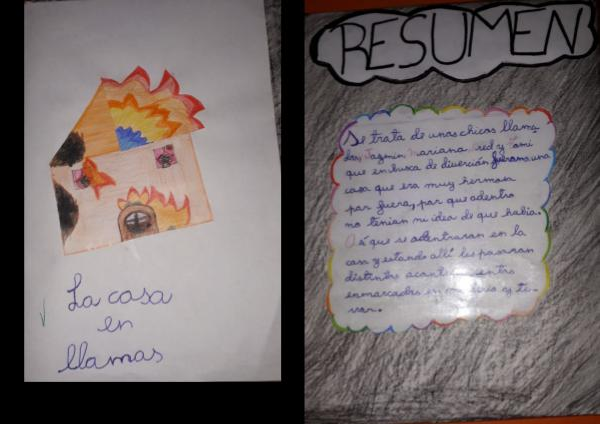 La casa
en
llamas
RESUMEN
Se trata de unos chicos llama
dos, Jazmín, Mariana, red y
que en busca de diversión fueron a una
casa que era muy hermosa
por fuera, por que adentro
no tenían ni idea de que había.
que se adentraron en la
casa y estando allí les pasaran
distintos acontecimientos
enmarcados en y te-
rror.